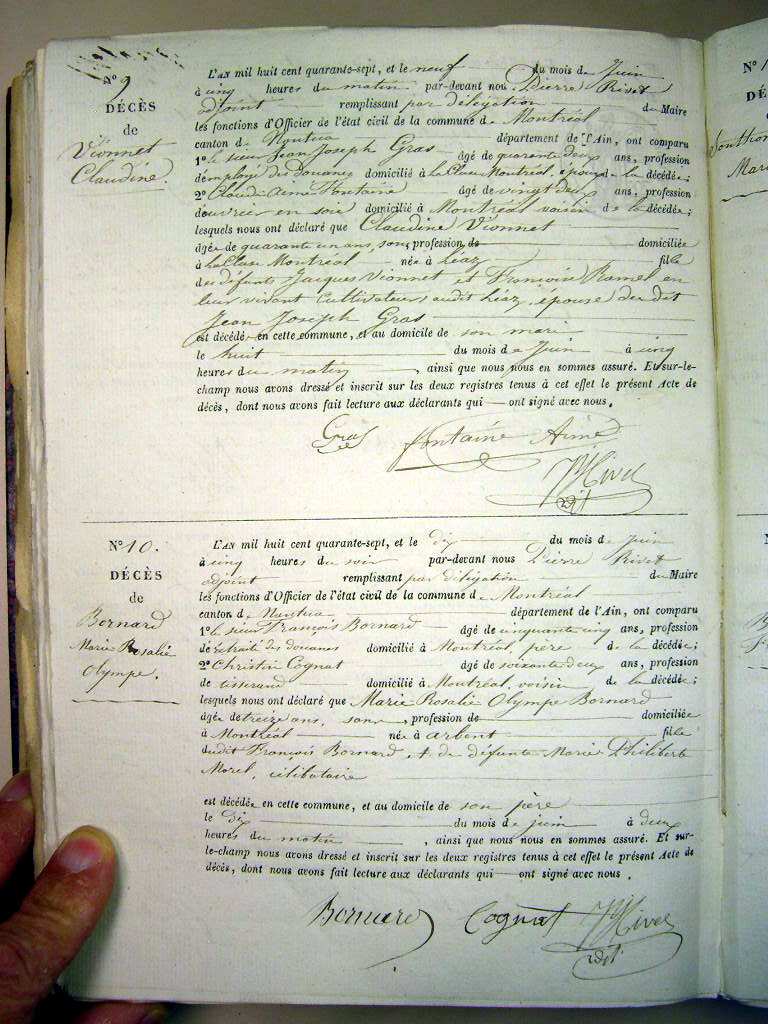 N° 9
DÉCÈS
de
Vionnet
Claudine
L'AN mil huit cent quarante-sept, et le neuf du mois de Juin
à cinq heures du matin par-devant nous Pierre Rivet
adjoint remplissant par délégation du Maire
les fonctions d'Officier de l'état civil de la commune de Montréal
canton de Nantua département de l'Ain, ont comparu
1° le sieur Jean Joseph Gras âgé de quarante deux ans, profession
d'employé des douanes domicilié à La Cluse Montréal, époux de la décédée;
2° Claude Aimé Fontaine âgé de vingt deux ans, profession
d'ouvrier en soie domicilié à Montréal voisin de la décédée;
lesquels nous ont déclaré que Claudine Vionnet
âgée de quarante un ans, sans profession de domiciliée
à La Cluse Montréal née à Léaz fille
des défunts Jacques Vionnet et Françoise Ramel en
leur vivant Cultivateurs audit Léaz, épouse du dit
Jean Joseph Gras
est décédée en cette commune, et au domicile de son mari
le huit du mois de Juin à cinq
heures du matin, ainsi que nous nous en sommes assuré. Et sur-le-
champ nous avons dressé et inscrit sur les deux registres tenus à cet effet le présent Acte de
décès, dont nous avons fait lecture aux déclarants qui ont signé avec nous.
Gras fontaine Aimé
Rivet
adjt
N° 10.
DÉCÈS
de
Bornard
Marie Rosalie
Olympe.
L'AN mil huit cent quarante-sept, et le dix du mois de Juin
à cinq heures du soir par-devant nous Pierre Rivet
adjoint remplissant par délégation du Maire
les fonctions d'Officier de l'état civil de la commune de Montréal
canton de Nantua département de l'Ain, ont comparu
1° le sieur François Bornard âgé de cinquante cinq ans, profession
de retraité des douanes domicilié à Montréal, père de la décédée;
2° Christin Cognat âgé de soixante deux ans, profession
de tisserand domicilié à Montréal, voisin de la décédée;
lesquels nous ont déclaré que Marie Rosalie Olympe Bornard
âgée de treize ans, sans, profession de domiciliée
à Montréal née à arbent fille
dudit François Bornard et de défunte Marie Philiberte
Morel, célibataire
est décédée en cette commune, et au domicile de son père
le dix du mois de juin à deux
heures du matin, ainsi que nous nous en sommes assuré. Et sur-
le-champ nous avons dressé et inscrit sur les deux registres tenus à cet effet le présent Acte de
décès, dont nous avons fait lecture aux déclarants qui ont signé avec nous.
Bornard Cognat Rivet
adjt
N° 1
DÉ
Mari